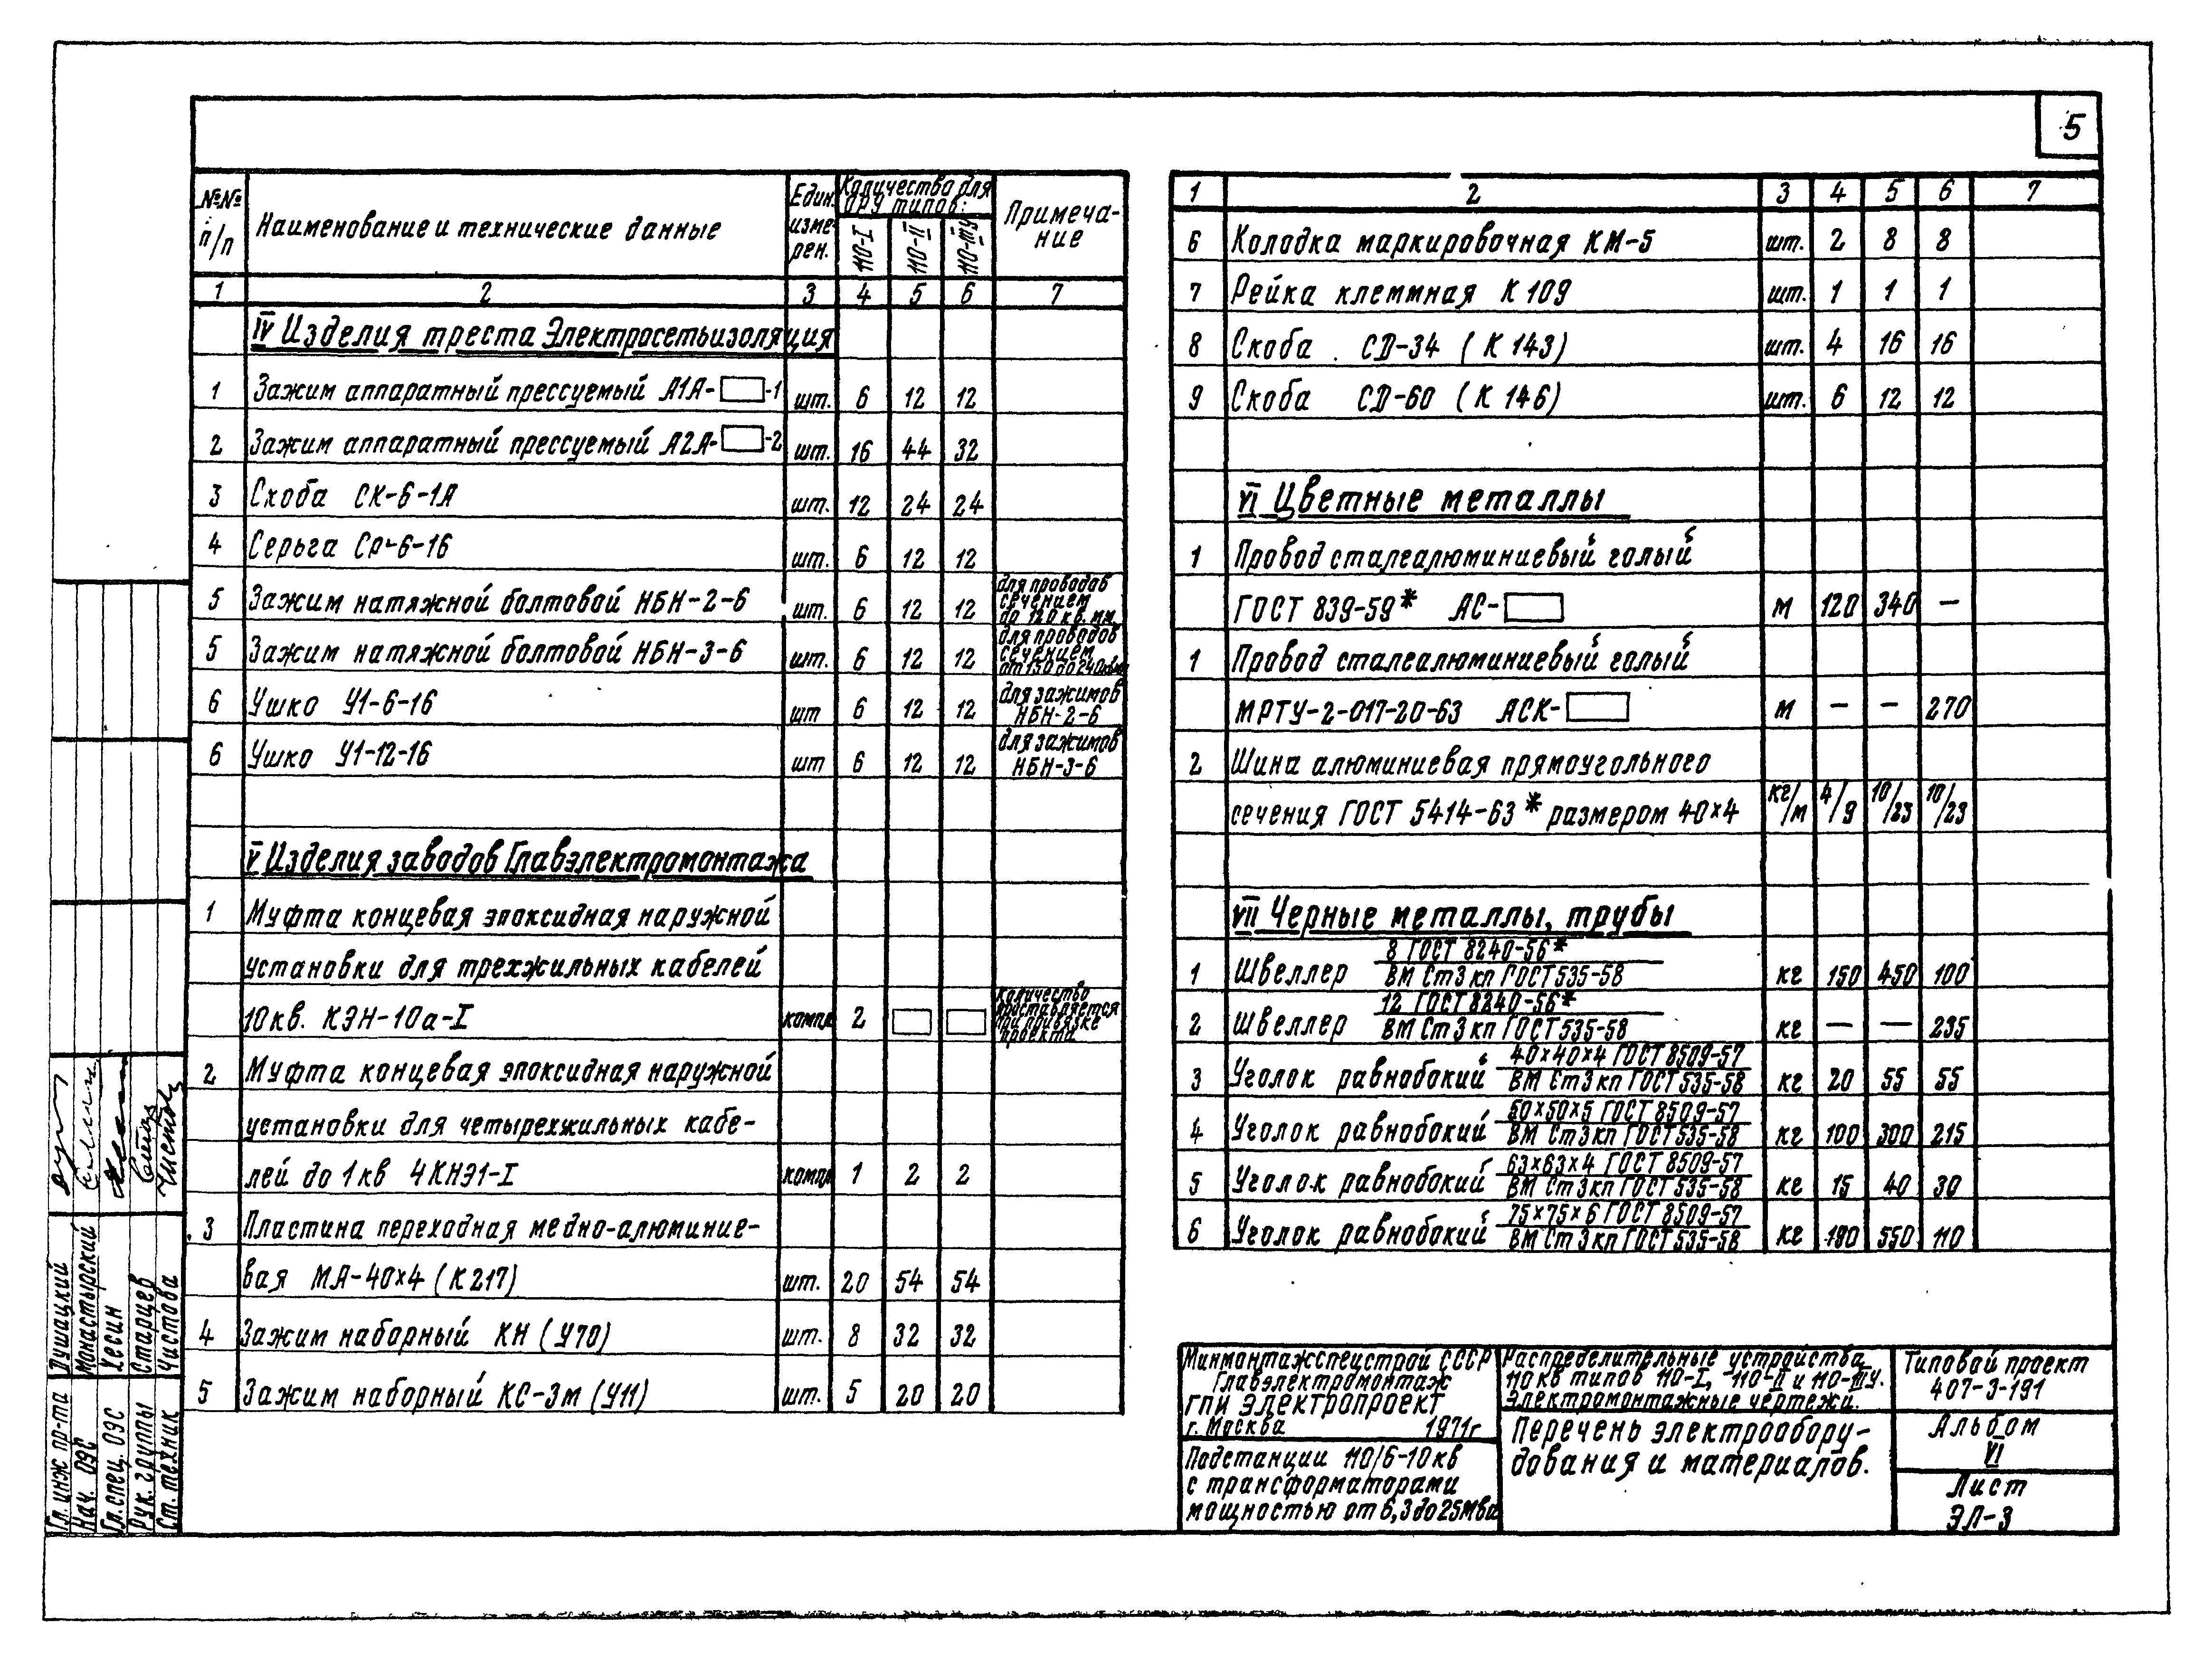 5
№№ п/п Наименование и технические данные Един. измерен. Количество для ОРУ типов: 110-I 110-II 110-IIIУ Примечание
1 2 3 4 5 6 7
IV Изделия треста Электросетьизоляция
1 Зажим аппаратный прессуемый А1А-□-1 шт. 6 12 12
2 Зажим аппаратный прессуемый А2А-□-2 шт. 16 44 32
3 Скоба СК-6-1А шт. 12 24 24
4 Серьга Ср-6-16 шт. 6 12 12
5 Зажим натяжной болтовой НБН-2-6 шт. 6 12 12 для проводов сечением до 120 кв. мм
5 Зажим натяжной болтовой НБН-3-6 шт. 6 12 12 для проводов сечением от 150 до 240 кв.мм
6 Ушко У1-6-16 шт 6 12 12 для зажимов НБН-2-6
6 Ушко У1-12-16 шт 6 12 12 для зажимов НБН-3-6
V Изделия заводов Главэлектромонтажа
1 Муфта концевая эпоксидная наружной
установки для трехжильных кабелей
10кв. КЭН-10а-I компл 2 □ □ количество проставляется при привязке проекта
2 Муфта концевая эпоксидная наружной
установки для четырехжильных кабе-
лей до 1кв 4КНЭ1-I компл 1 2 2
3 Пластина переходная медно-алюминие-
вая МА-40×4 (К217) шт. 20 54 54
4 Зажим наборный КН (У70) шт. 8 32 32
5 Зажим наборный КС-3м (У11) шт. 5 20 20
1 2 3 4 5 6 7
6 Колодка маркировочная КМ-5 шт. 2 8 8
7 Рейка клеммная К109 шт. 1 1 1
8 Скоба СД-34 (К143) шт. 4 16 16
9 Скоба СД-60 (К146) шт. 6 12 12
VI Цветные металлы
1 Провод сталеалюминиевый голый
ГОСТ 839-59* АС-□ м 120 340 —
1 Провод сталеалюминиевый голый
МРТУ-2-017-20-63 АСК-□ м — — 270
2 Шина алюминиевая прямоугольного
сечения ГОСТ 5414-63* размером 40×4 кг/м 4/9 10/23 10/23
VII Черные металлы, трубы
8 ГОСТ 8240-56*
1 Швеллер ВМ Ст3кп ГОСТ535-58 кг 150 450 100
12 ГОСТ8240-56*
2 Швеллер ВМ Ст3кп ГОСТ535-58 кг — — 235
40×40×4 ГОСТ8509-57
3 Уголок равнобокий ВМ Ст3кп ГОСТ535-58 кг 20 55 55
50×50×5 ГОСТ8509-57
4 Уголок равнобокий ВМ Ст3кп ГОСТ535-58 кг 100 300 215
63×63×4 ГОСТ 8509-57
5 Уголок равнобокий ВМ Ст3кп ГОСТ535-58 кг 15 40 30
75×75×6 ГОСТ 8509-57
6 Уголок равнобокий ВМ Ст3кп ГОСТ535-58 кг 550 110
Минмонтажспецстрой СССР
Главэлектромонтаж
ГПИ ЭЛЕКТРОПРОЕКТ
г. Москва 1971г
Подстанции 110/6-10кв
с трансформаторами
мощностью от 6,3до25Мва
Распределительные устройства
110кв типов 110-I, 110-II и 110-IIIУ.
Электромонтажные чертежи.
Перечень электрообору-
дования и материалов.
Типовой проект
407-3-191
Альбом
VI
Лист
ЭЛ-3
Гл. инж пр-та Душацкий
Нач. ОЭС Монастырский
Гл.спец. ОЭС Хесин
Рук. группы Старцев
Ст. техник Чистова